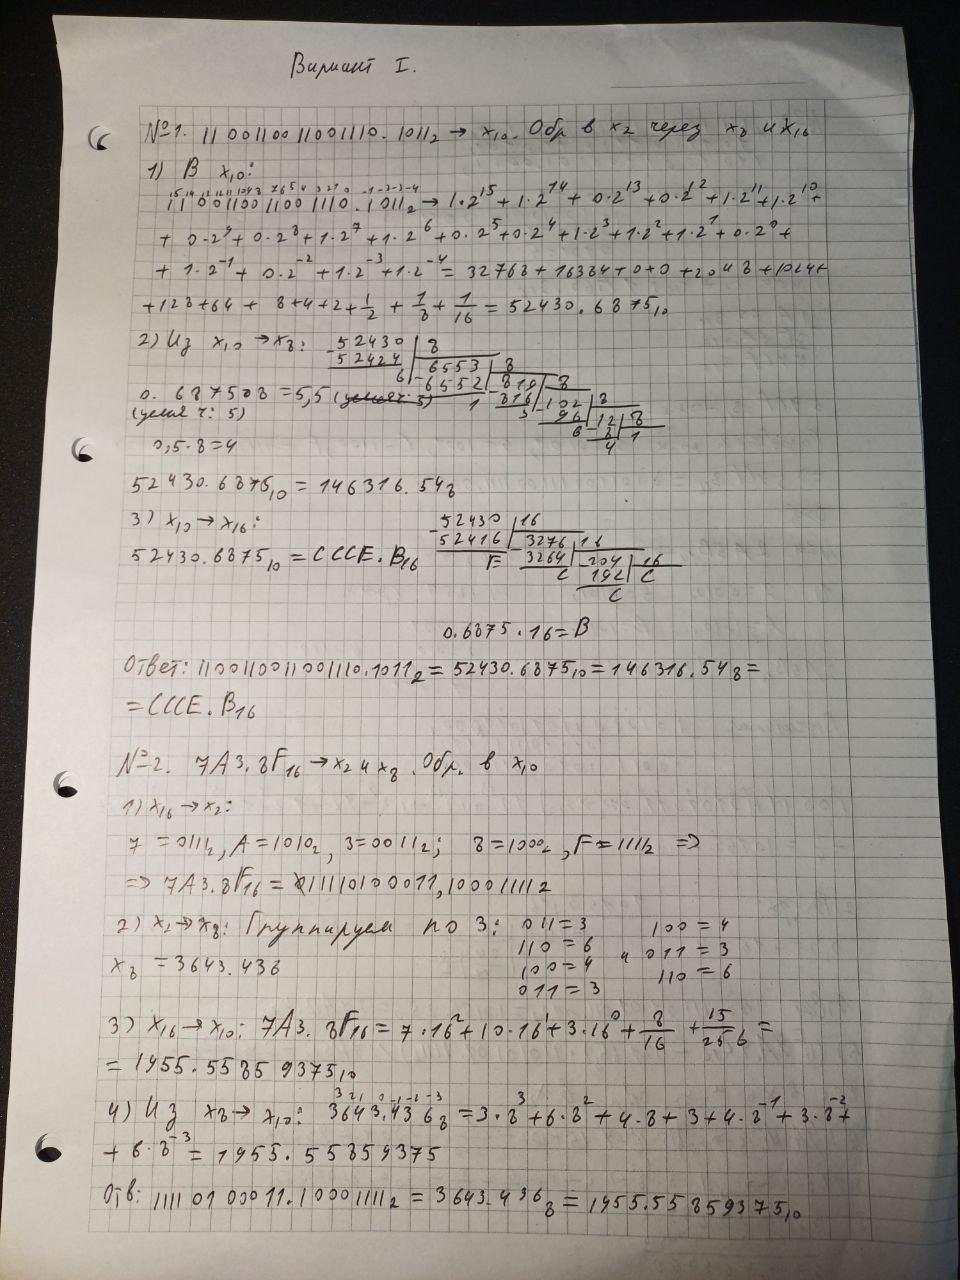 Вариант I.
№1. 1100110011001110.1011₂ → x₁₀. Обр в x₂ через x₈ и x₁₆
1) В x₁₀:
15 14 13 12 11 10 9 8 7 6 5 4 3 2 1 0 -1 -2 -3 -4
1100110011001110.1011₂ → 1·2¹⁵ + 1·2¹⁴ + 0·2¹³ + 0·2¹² + 1·2¹¹ + 1·2¹⁰ +
+ 0·2⁹ + 0·2⁸ + 1·2⁷ + 1·2⁶ + 0·2⁵ + 0·2⁴ + 1·2³ + 1·2² + 1·2¹ + 0·2⁰ +
+ 1·2⁻¹ + 0·2⁻² + 1·2⁻³ + 1·2⁻⁴ = 32768 + 16384 + 0 + 0 + 2048 + 1024 +
+ 128 + 64 + 8 + 4 + 2 + 1/2 + 1/8 + 1/16 = 52430.6875₁₀
2) Из x₁₀ → x₈: 52430 | 8
52424 | 6553 | 8
6 6552 | 819 | 8
0.6875·8 = 5,5 1 816 | 102 | 8
(целая ч: 5) 3 96 | 12 | 8
6 8 | 1
0,5·8 = 4 4
52430.6875₁₀ = 146316.54₈
3) x₁₀ → x₁₆: 52430 | 16
52416 | 3276 | 16
52430.6875₁₀ = CCCE.B₁₆ E 3264 | 204 | 16
C 192 | C
C
0.6875·16 = B
Ответ: 1100110011001110.1011₂ = 52430.6875₁₀ = 146316.54₈ =
= CCCE.B₁₆
№2. 7A3.8F₁₆ → x₂ и x₈. Обр. в x₁₀
1) x₁₆ → x₂:
7 = 0111₂, A = 1010₂, 3 = 0011₂; 8 = 1000₂, F = 1111₂ ⇒
⇒ 7A3.8F₁₆ = 011110100011,10001111₂
2) x₂ → x₈: Группируем по 3: 011 = 3 100 = 4
110 = 6 и 011 = 3
x₈ = 3643.436 100 = 4 110 = 6
011 = 3
3) x₁₆ → x₁₀: 7A3.8F₁₆ = 7·16² + 10·16¹ + 3·16⁰ + 8/16 + 15/256 =
= 1955.55859375₁₀
3 2 1 0 -1 -2 -3
4) Из x₈ → x₁₀: 3643.436₈ = 3·8³ + 6·8² + 4·8 + 3 + 4·8⁻¹ + 3·8⁻² +
+ 6·8⁻³ = 1955.55859375
Отв: 11110100011.10001111₂ = 3643.436₈ = 1955.55859375₁₀